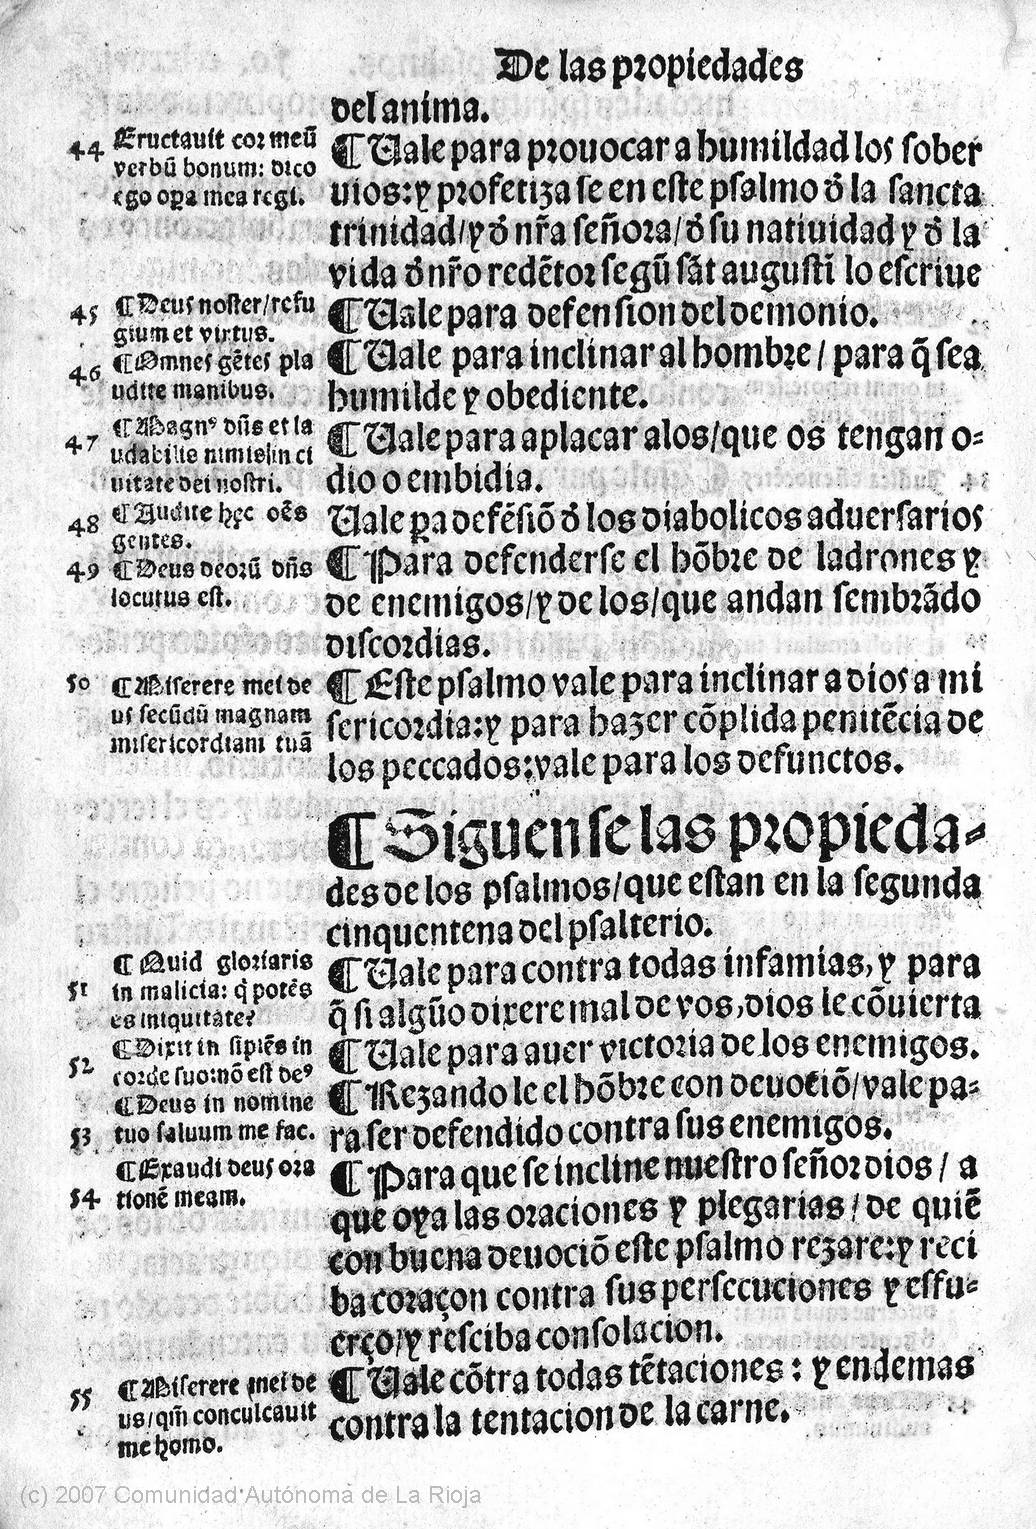 De las propiedades
del anima.
44 Eructauit cor meū
verbū bonum: dico
ego opa mea regi.
¶ Uale para prouocar a humildad los sober
uios: y profetiza se en este psalmo d̄ la sancta
trinidad/ y d̄ nr̄a señora/ d̄ su natiuidad y d̄ la
vida d̄ nr̄o redētor segū sāt augustī lo escriue
45 ¶ Deus noster/ refu
gium et virtus.
¶ Uale para defension del demonio.
46 ¶ Omnes gētes pla
udite manibus.
¶ Uale para inclinar al hombre / para q̄ sea
humilde y obediente.
47 ¶ Magnꝰ dn̄s et la
udabilis nimis/in ci
uitate dei nostri.
¶ Uale para aplacar alos/ que os tengan o-
dio o embidia.
48 ¶ Audite hęc oēs
gentes.
Uale ꝑa defēsiō d̄ los diabolicos aduersarios
49 ¶ Deus deorū dn̄s
locutus est.
¶ Para defenderse el hōbre de ladrones y
de enemigos/ y de los/ que andan sembrādo
discordias.
50 ¶ Miserere mei de
us secūdū magnam
misericordiam tuā
¶ Este psalmo vale para inclinar a dios a mi
sericordia: y para hazer cōplida penitēcia de
los peccados: vale para los defunctos.
¶ Siguen se las propieda-
des de los psalmos/ que estan en la segunda
cinquentena del psalterio.
51 ¶ Quid gloriaris
in malicia: q̄ potēs
es iniquitate?
¶ Uale para contra todas infamias, y para
q̄ si algūo dixere mal de vos, dios le cōuierta
52 ¶ Dixit in sipiēs in
corde suo: nō est deꝰ
¶ Uale para auer victoria de los enemigos.
53 ¶ Deus in nomine
tuo saluum me fac.
¶ Rezando le el hōbre con deuociō/ vale pa-
ra ser defendido contra sus enemigos.
54 ¶ Exaudi deus ora
tionē meam.
¶ Para que se incline nuestro señor dios / a
que oya las oraciones y plegarias / de quiē
con buena deuociō este psalmo rezare: y reci
ba coraçon contra sus persecuciones y esfu-
erço/ y resciba consolacion.
55 ¶ Miserere mei de
us/ qm̄ conculcauit
me homo.
¶ Uale cōtra todas tētaciones : y en demas
contra la tentacion de la carne.
(c) 2007 Comunidad Autónoma de La Rioja